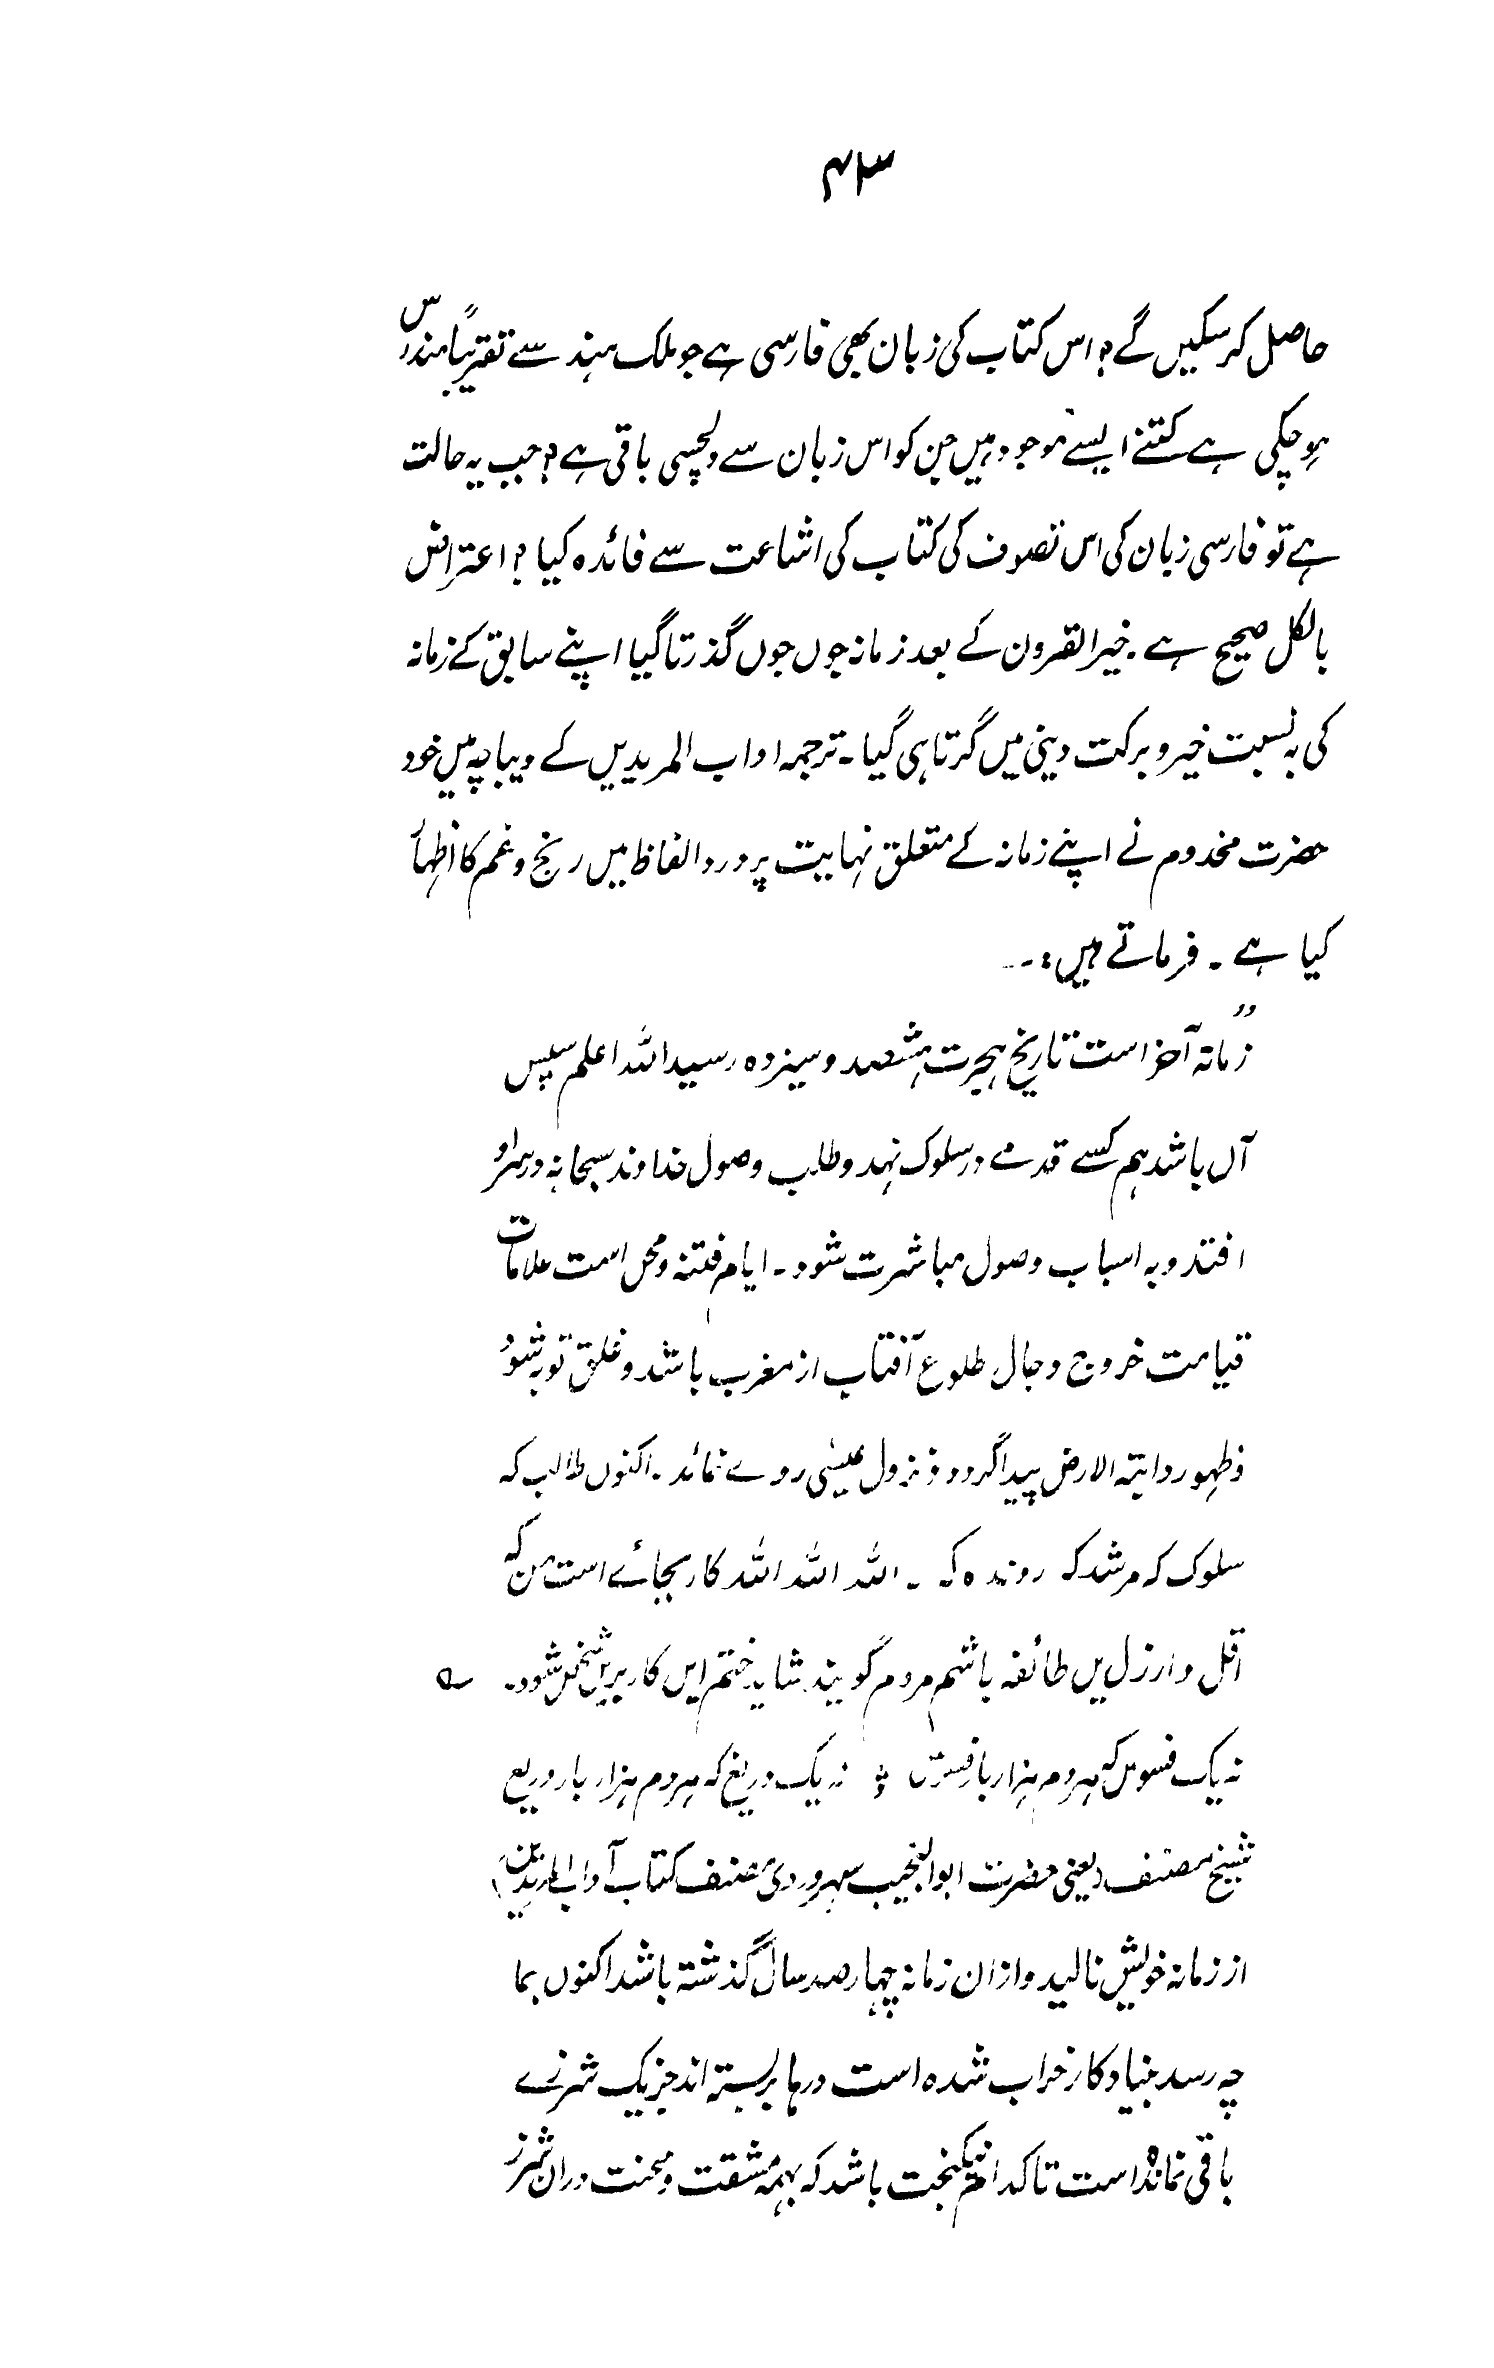 ۴۳
حاصل کرسکیں گے؟ اس کتاب کی زبان بھی فارسی ہے جو ملک ہند سے تقریباً مندرس
ہوچکی ہے کتنے ایسے موجود ہیں جن کو اس زبان سے دلچسپی باقی ہے؟ جب یہ حالت
ہے تو فارسی زبان کی اس تصوف کی کتاب کی اشاعت سے فائدہ کیا؟ اعتراض
بالکل صحیح ہے۔ خیرالقرون کے بعد زمانہ جوں جوں گذرتا گیا اپنے سابق کے زمانہ
کی بہ نسبت خیر و برکت دینی میں گرتا ہی گیا۔ ترجمہ اداب المریدیں کے دیباچہ میں خود
حضرت مخدوم نے اپنے زمانہ کے متعلق نہایت پردرد الفاظ میں رنج و غم کا اظہار
کیا ہے۔ فرماتے ہیں:۔
"زمانہ آخر است تاریخ ہجرت ہشتصد و سیزدہ رسید اللہ اعلم سپس
آں باشد ہم کسے قدمے در سلوک نہد و طلب وصول خداوند سبحانہ در سر او
افتد و بہ اسباب وصول مباشرت شود۔ ایام فتنہ و محن است علامات
قیامت خروج دجال طلوع آفتاب از مغرب باشد و غلق توبہ شود
و ظہور دابتہ الارض پیدا گردد و نزول عیسٰی روے نمائد۔ اکنوں طالب کہ
سلوک کہ مرشد کہ روندہ کہ۔ اللہ اللہ اللہ کار بجائے است من کہ
اقل و ارزل ایں طائفہ باشم مردم گویند شاید ختم ایں کار بریں شخص شود۔ ؎
نہ یک فسوس کہ ہردم ہزار بار فسوس ؛ نہ یک دریغ کہ ہردم ہزار بار دریغ
شیخ مصنف (یعنی حضرت ابوالنجیب سہروردی مصنف کتاب آداب المریدین)
از زمانہ خویش نالید و ازان زمانہ چہارصد سال گذشتہ باشد اکنوں بما
چہ رسد بنیاد کار خراب شدہ است درہا بر بستہ اند جز یک شرزے
باقی نماندہ است تا کدام نیکبخت باشد کہ بہمہ مشقت و محنت دران شرز